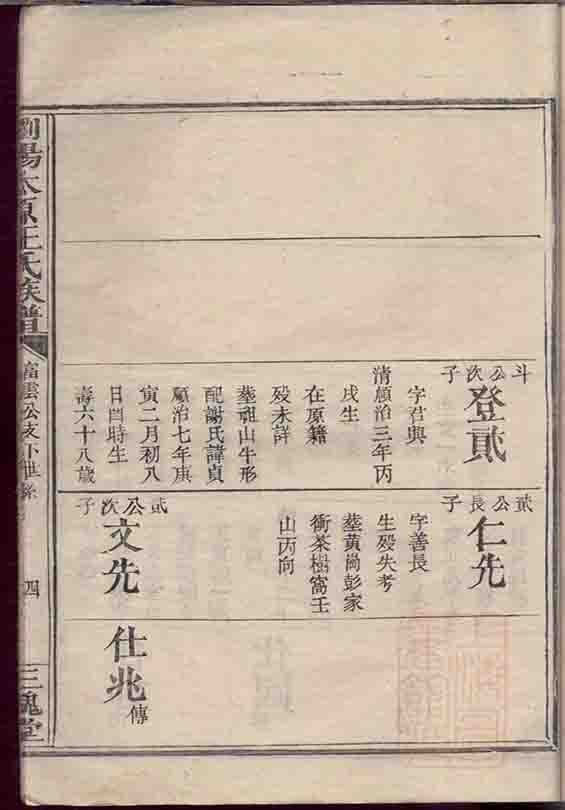 斗公次子
登貳
字君輿
清順治三年丙
戌生
在原籍
歿未詳
塟祖山牛形
配謝氏諱貞
順治七年庚
寅二月初八
日酉時生
壽六十八歲
貳公長子
仁先
字善長
生歿失考
塟黄尚彭家
衝茶樹窩壬
山丙向
貳公次子
文先
仕兆
傳
瀏陽太原王氏族譜
富雲公支下世系
四
三槐堂